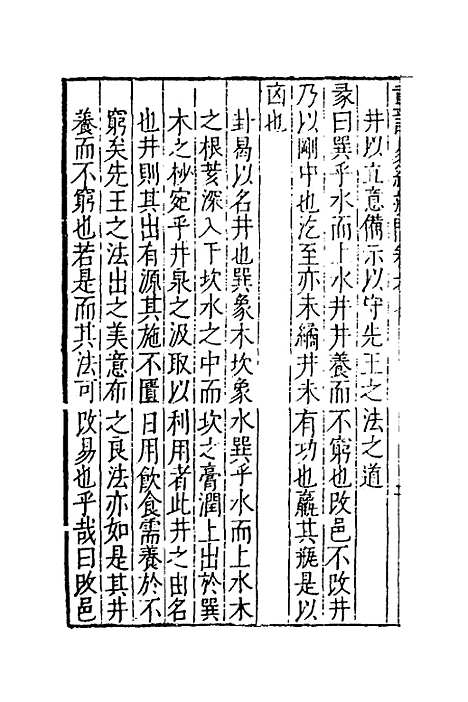 井以立意備示以守先王之法之道
彖曰巽乎水而上水井井養而不窮也改邑不改井
乃以剛中也汔至亦未繘井未有功也羸其瓶是以
凶也
卦曷以名井也巽象木坎象水巽乎水而上水木
之根荄深入下坎水之中而坎之膏潤上出於巽
木之杪宛乎井泉之汲取以利用者此井之由名
也井則其出有源其施不匱日用飲食需養於不
窮矣先王之法出之美意布之良法亦如是其井
養而不窮也若是而其法可改易也乎哉曰改邑